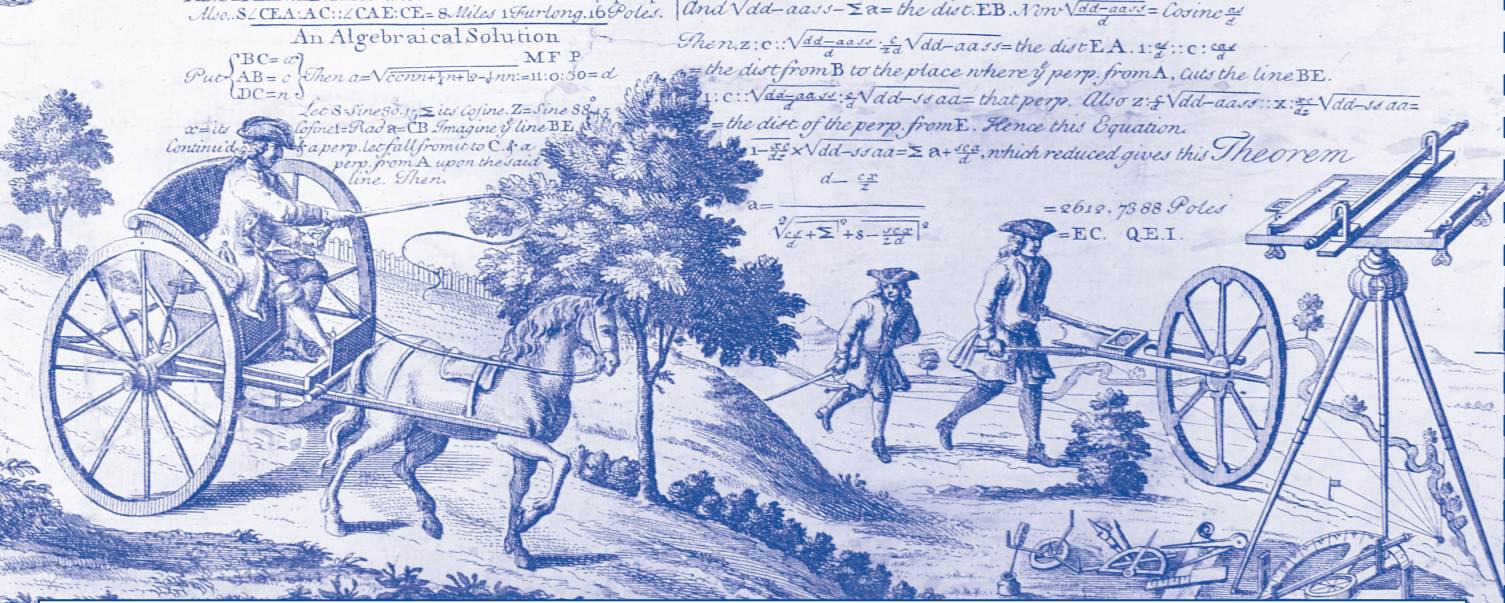 Also, S∠CEA:AC::∠CAE:CE=8 Miles 1 Furlong. 16 Poles.
An Algebraical Solution
M F P
Put {BC=a
AB=c
DC=n} Then a=√ccnn+¼n+|²-½nn:=11:0:30=d
Let S=Sine 80.15 Σ its Cosine. Z=Sine 88°45
x=its Cosine 1=Rad° a=CB. Imagine yᵉ line BE
Continu'd & a perp. let fall from it to C & a
perp. from A upon the said
line. Then.
And √dd-aass-Σa= the dist. EB. Now √dd-aass/d=Cosine as/d
Then, z:c::√dd-aass/d:c/zd√dd-aass=the dist EA. 1:as/d::c:cas/d
=the dist from B to the place where yᵉ perp. from A, cuts the line BE.
1:c::√dd-aass/d:c/d√dd-ssaa=that perp. Also z:c/d√dd-aass::x:xc/dz√dd-ssaa=
=the dist. of the perp. from E. Hence this Equation.
1-xc/dz×√dd-ssaa=Σa+sca/d, which reduced gives this Theorem
d-cx/z
a=
=2612,7388 Poles
=EC. Q.E.I.